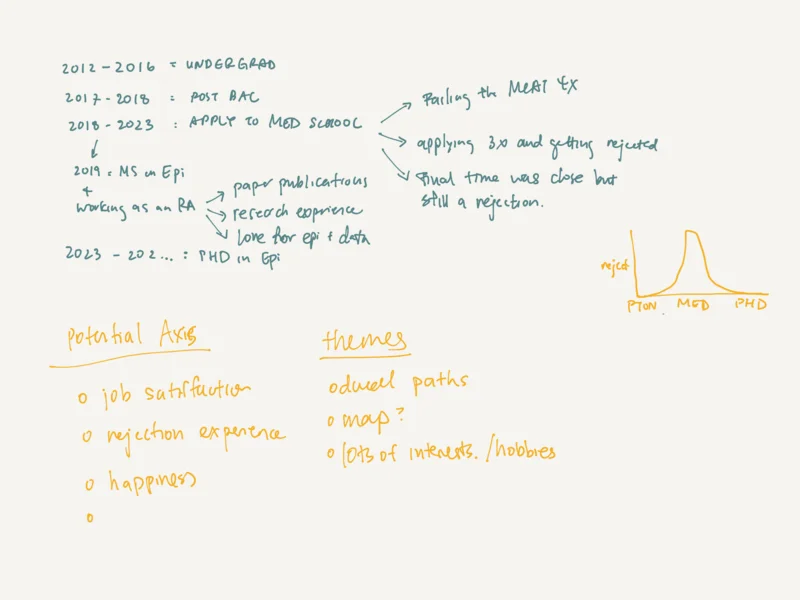 2012 - 2016 = UNDERGRAD
2017 - 2018 = POST BAC
2018 - 2023 : APPLY TO MED SCHOOL
Failing the MCAT 4X
applying 3x and getting rejected
final time was close but
still a rejection.
2019 = MS in Epi
+
working as an RA
paper publications
research experience
love for epi + data
2023 - 202... : PHD in Epi
reject
PTON. MED PHD
Potential Axis
o job satisfaction
o rejection experience
o happiness
o
themes
o paths
o map?
o lots of interests. /hobbies